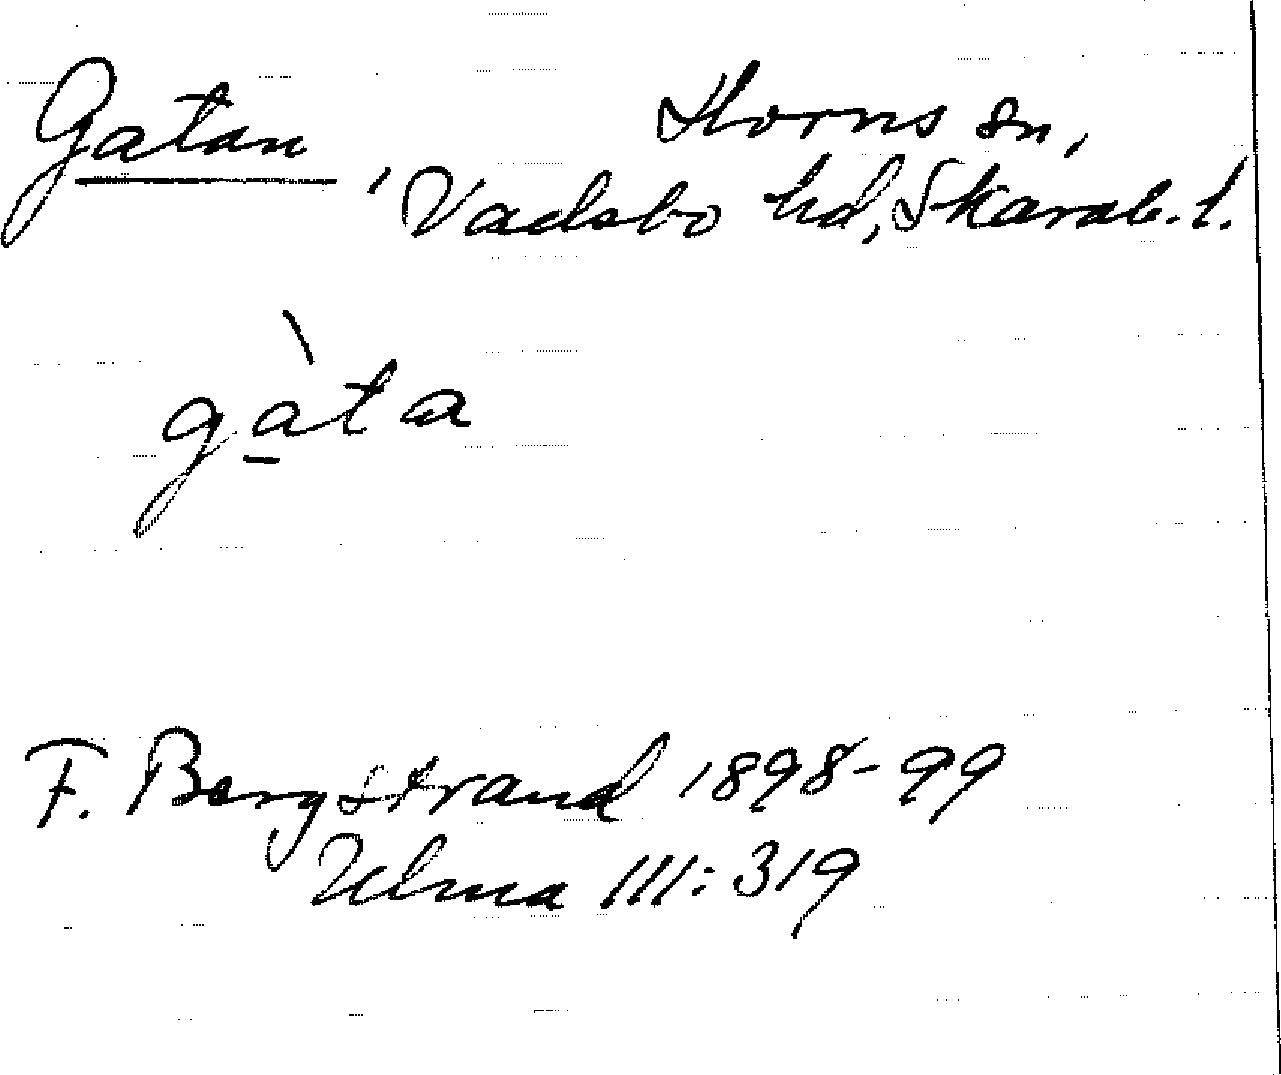 Gatan, Horns sn,
Vadsbo hd, Skarab. l.
gà̱ta
F. Bergstrand 1898-99
Ulma 111:319